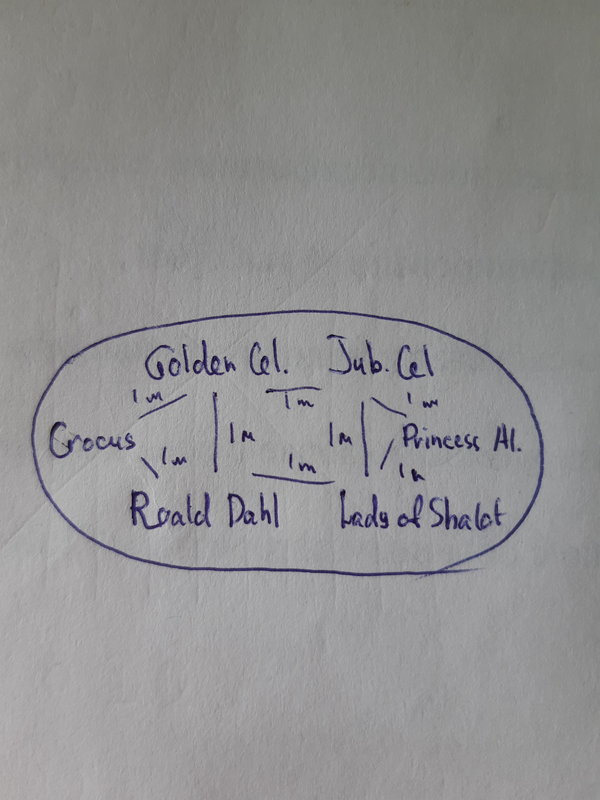 Golden Cel. Jub. Cel
1m 1m 1m
Crocus 1m 1m Princess Al.
1m 1m 1m
Roald Dahl Lady of Shalot